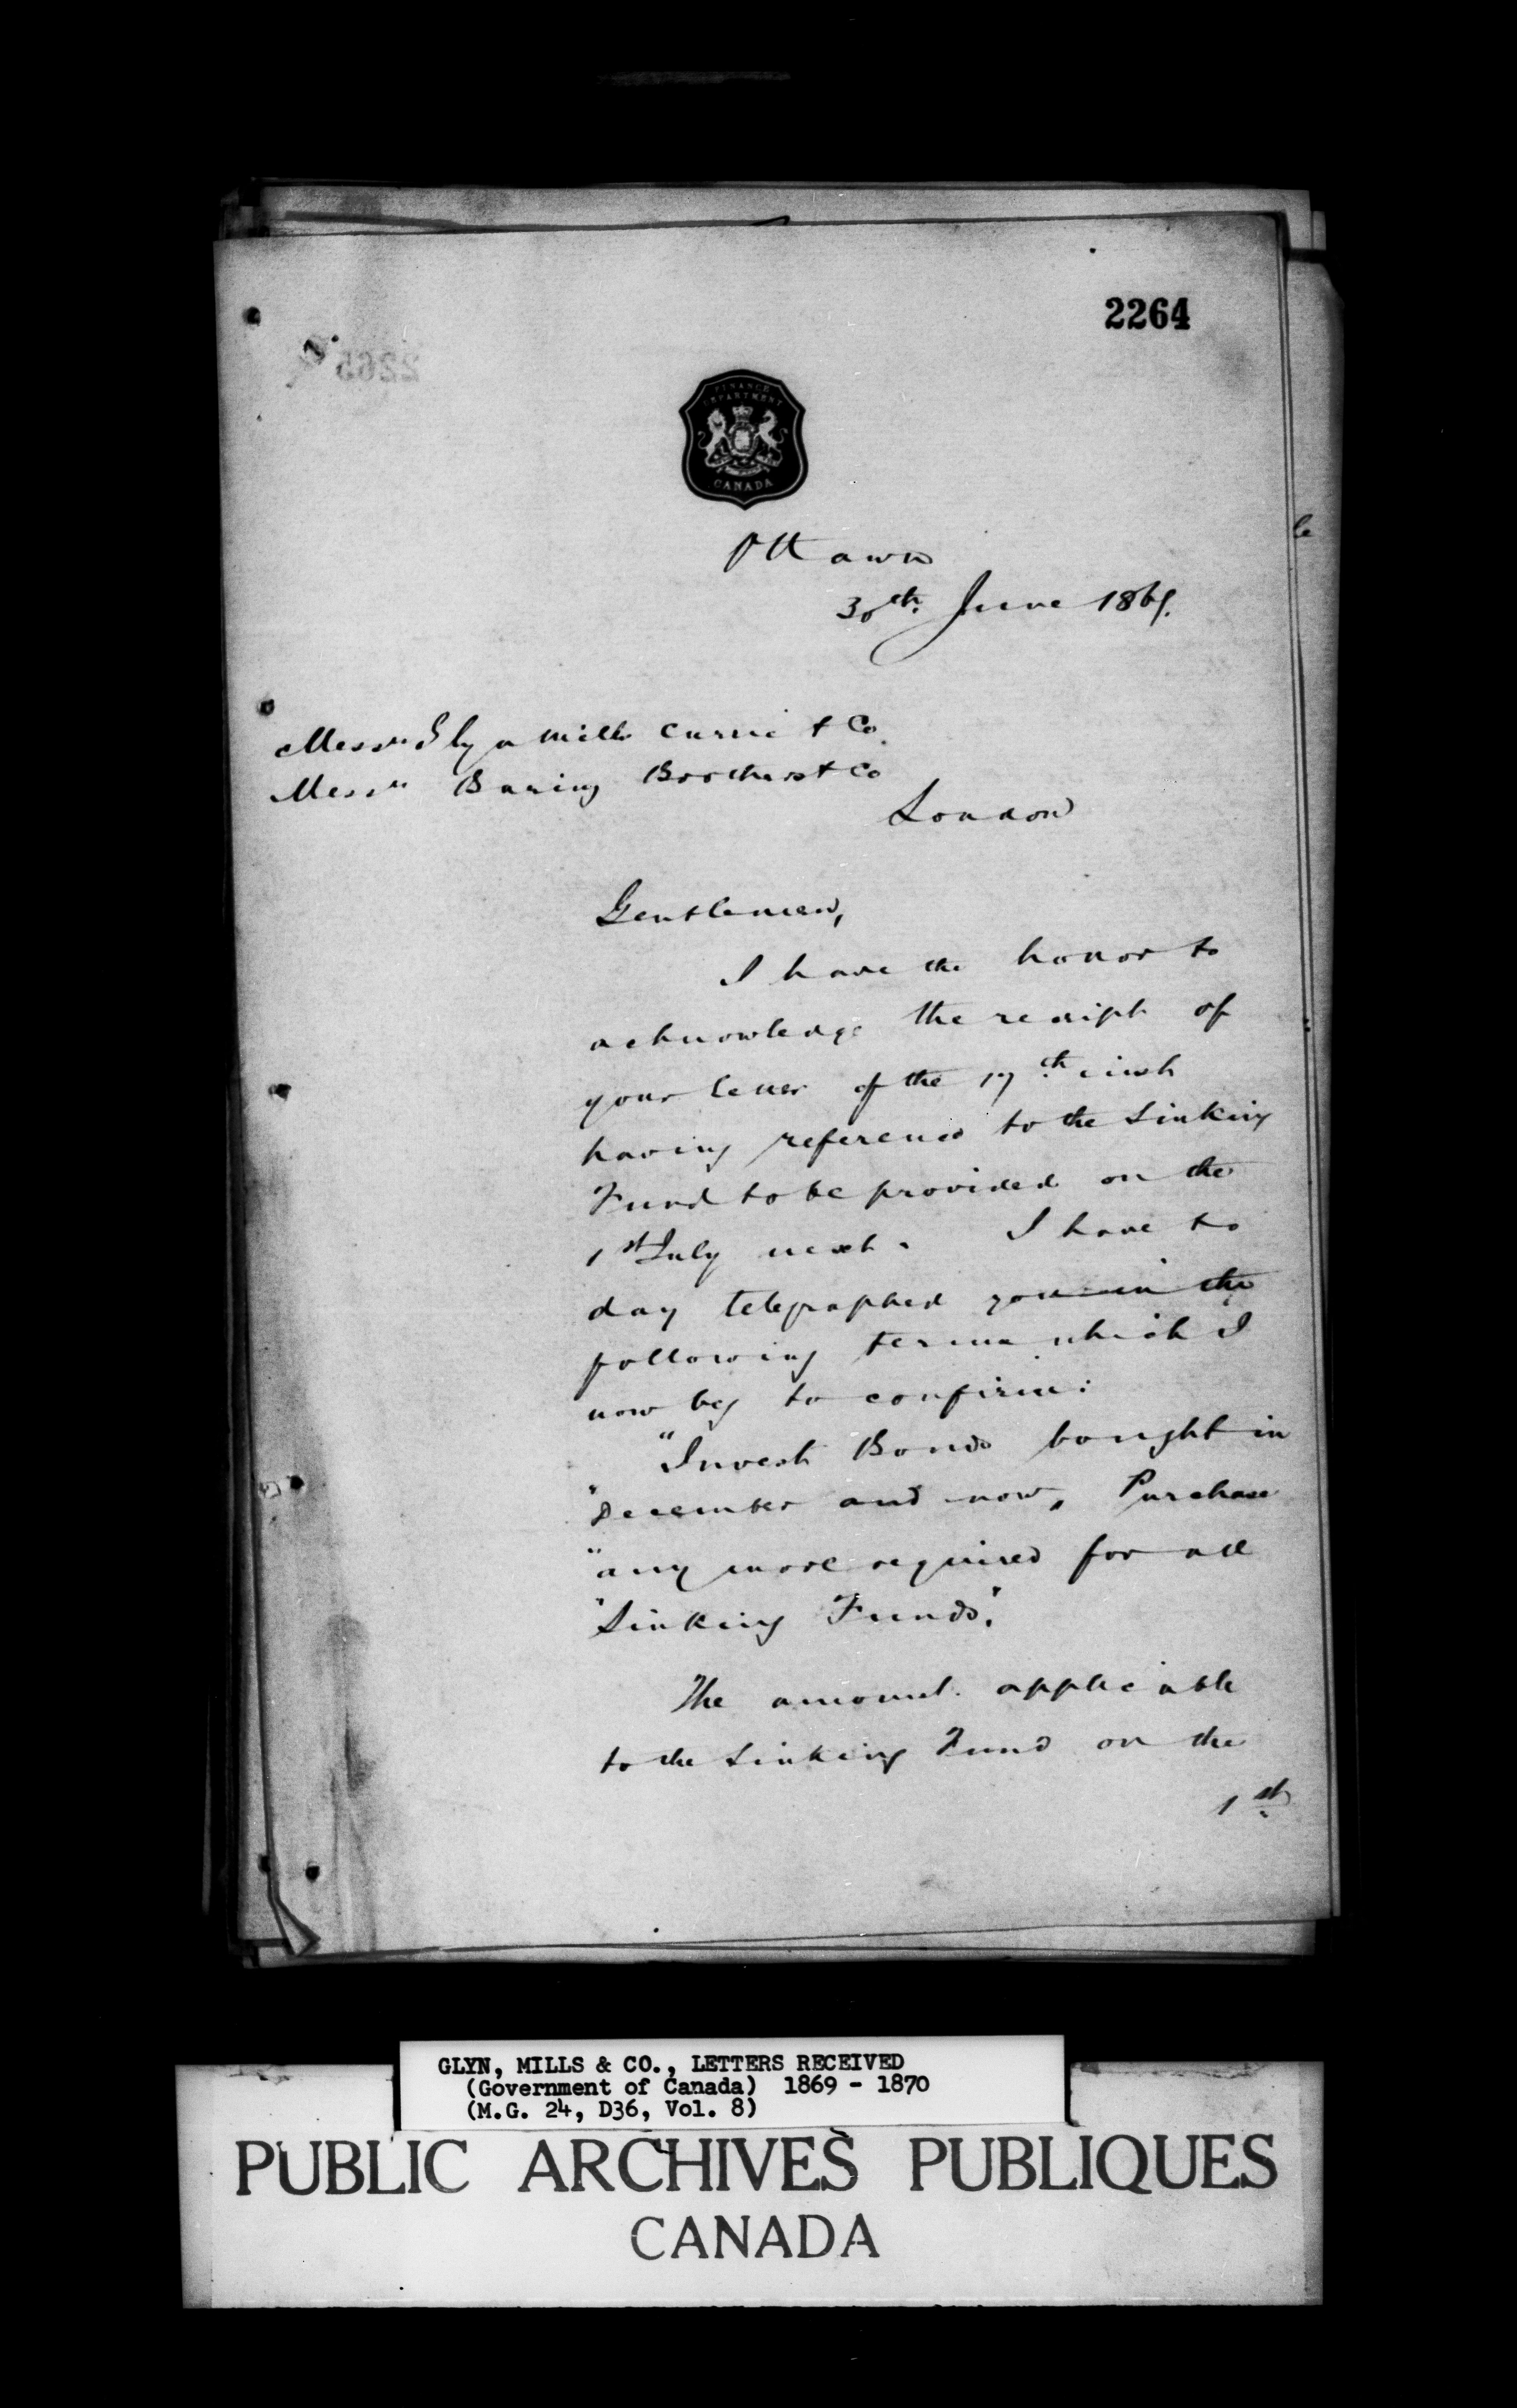 2264
2265
FINANCE
DEPARTMENT
CANADA
Ottawa
30th June 1869.
Messrs Glyn Mills Currie & Co
Messrs Baring Brothers & Co
London
Gentlemen,
I have the honor to
acknowledge the receipt of
your letter of the 17th inst
having reference to the Sinking
Fund to be provided on the
1st July next. I have to
day telegraphed you in the
following terms which I
now beg to confirm:
"Invest Bonds bought in
"December and now, Purchase
"any more required for all
"Sinking Funds".
The amount applicable
to the Sinking Fund on the
1st
GLYN, MILLS & CO., LETTERS RECEIVED
(Government of Canada) 1869 - 1870
(M.G. 24, D36, Vol. 8)
PUBLIC ARCHIVES PUBLIQUES
CANADA